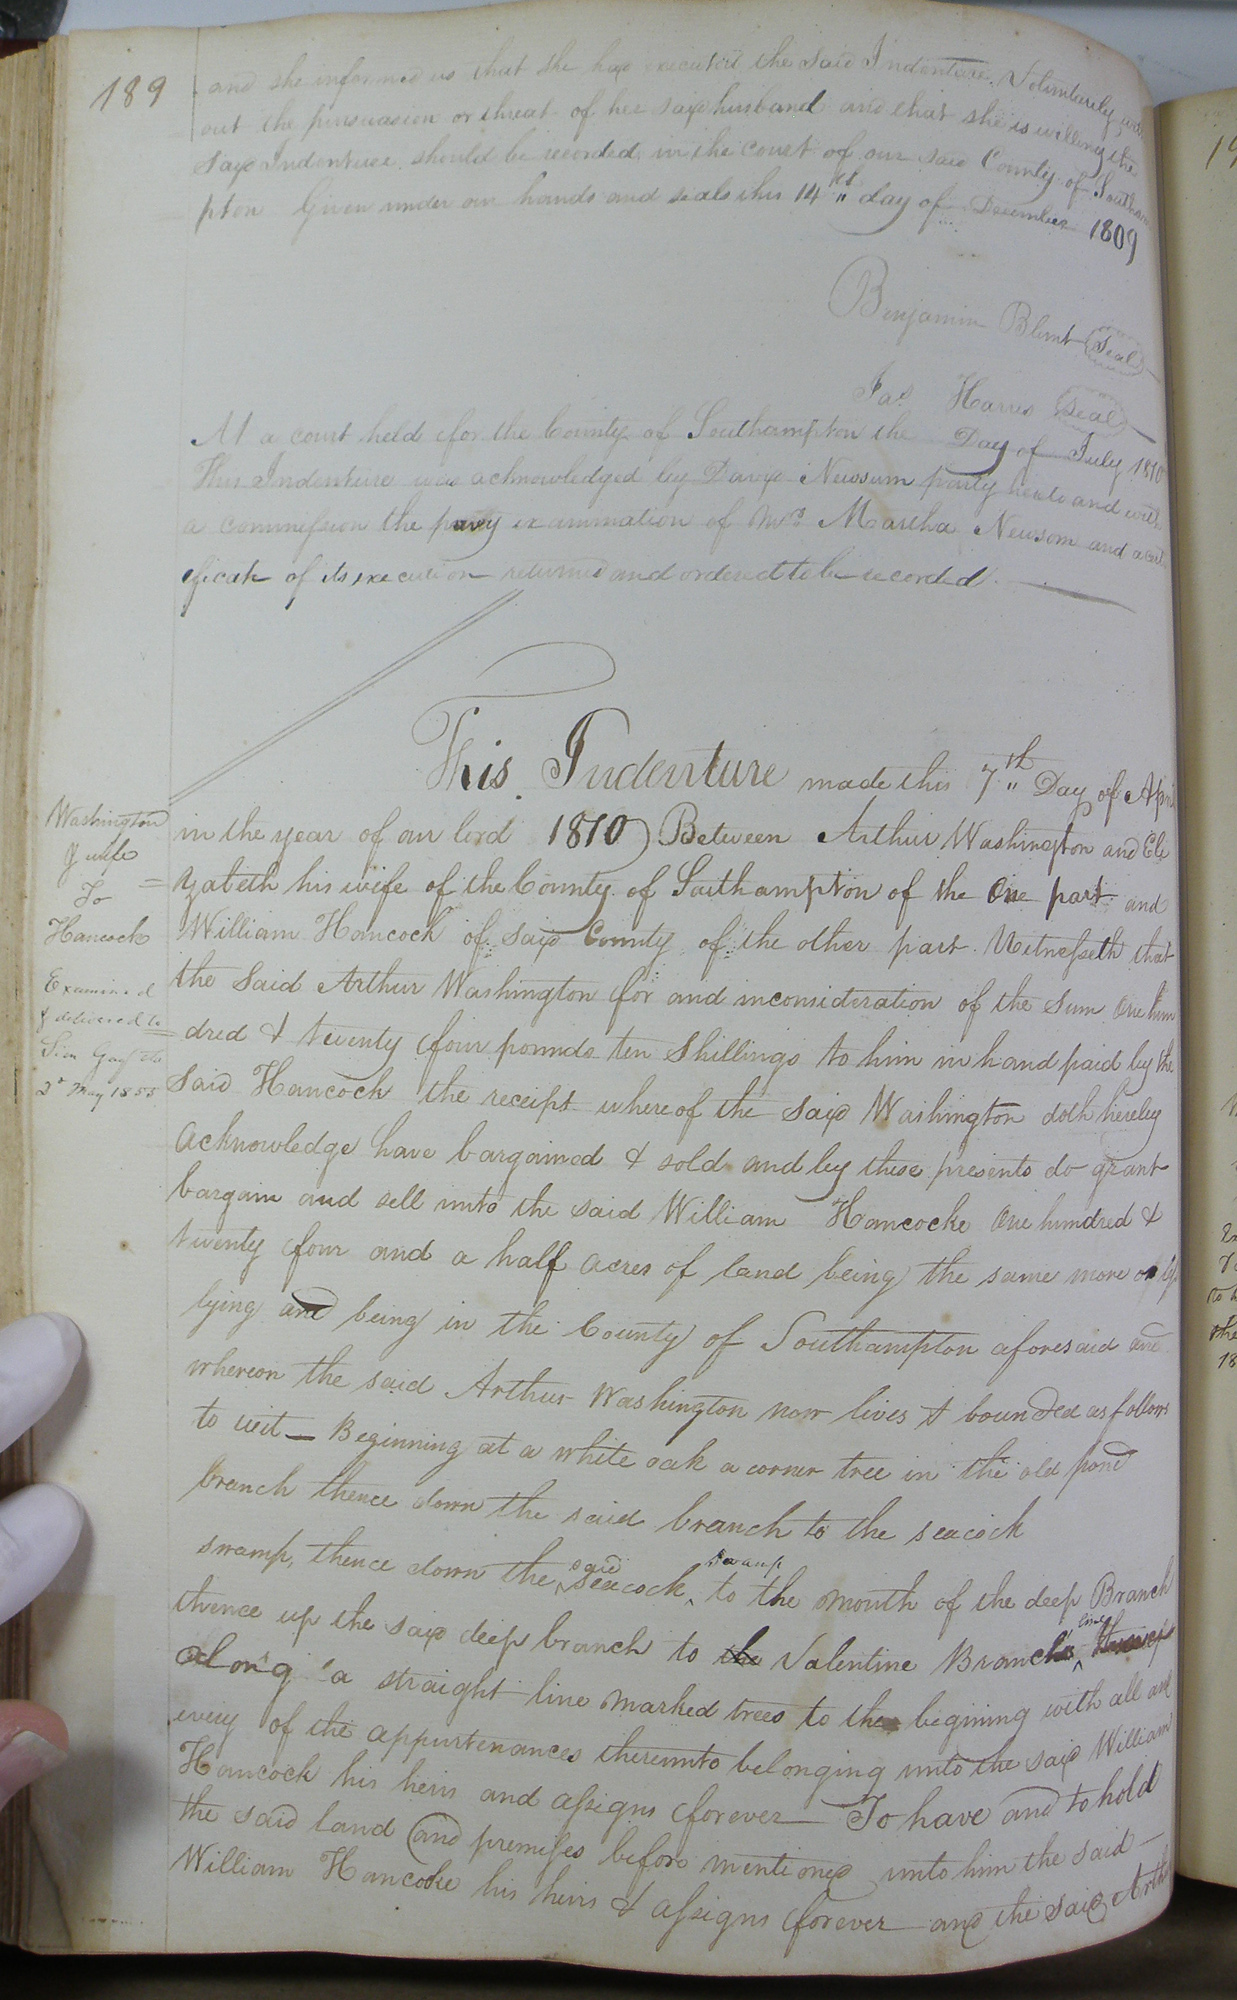 189
and she informed us that she had executed the said Indenture Voluntarely with
out the pursuasion or threat of her said husband and that she is willing the
Said Indenture should be recorded in the court of our said County of Southam
pton Given under our hands and seals this 14th day of December 1809
Benjamin Blunt Seal
Jas Harris Seal
At a court held for the County of Southampton the Day of July 1810
This Indenture was acknowledged by David Newsum party hereto and with
a commission the privy examination of Mrs Martha Newsom and a cert
ificate of its execution returned and ordered to be recorded
This Indenture made this 7th Day of April
in the year of our lord 1810 Between Arthur Washington and Eli
zabeth his wife of the County of Southampton of the One part and
William Hancock of said County of the other part Witnesseth that
the Said Arthur Washington for and inconsideration of the Sum One hun
dred & twenty four pounds ten Shillings to him in hand paid by the
Said Hancock the receipt whereof the said Washington doth hereby
Acknowledge have bargained & sold and by these presents do grant
bargain and sell unto the said William Hancocke One hundred &
twenty four and a half acres of land being the same more or less
lying and being in the County of Southampton aforesaid and
whereon the said Arthur Washington now lives & bounded as follows
to wit — Beginning at a white oak a corner tree in the old pond
branch thence down the said branch to the seacock
swamp, thence down the said seacock swamp to the mouth of the deep Branch
thence up the said deep branch to the Valentine Branchs line thence
along a straight line marked trees to the begining with all and
every of the appurtenances thereunto belonging unto the said William
Hancock his heirs and assigns forever — To have and to hold
the said land and premises before mentioned unto him the said —
William Hancocke his heirs & assigns forever and the said Arth
Washington
& wife
To
Hancock
Examined
& delivered to
2d May 1855